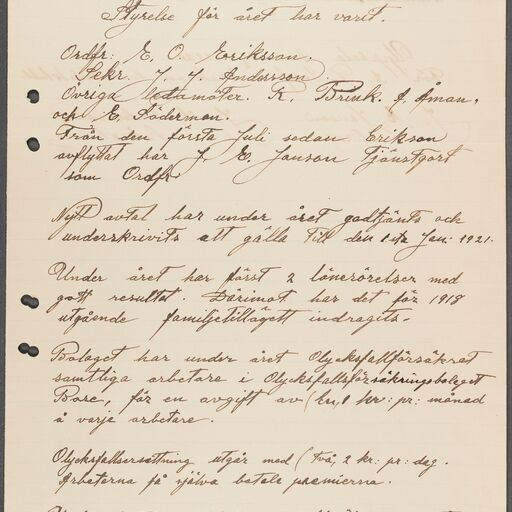 Styrelse för året har varit.
Ordfr: E. O. Erriksson.
Sekr. J. J. Andersson.
Övriga ledamöter. K. Brink. A. Åman.
och E. Söderman.
Från den första Juli sedan Erikson
avflyttat har J. E. Janson tjänstgort
som Ordfr
Nytt avtal har under året godtjänts och
underskrivits att gälla till den 1sta Jan: 1921.
Under året har först 2 lönerörelser med
gott resultat. Därimot har det för 1918
utgående familjetillägett indragits.
Bolaget har under året Olycksfallförsäkrat
samtliga arbetare i Olycksfallsförsäkringsbolaget
Bore, för en avgift av (en, 1 kr: pr: månad
å varje arbetare.
Olycksfallsersättning utgår med (två, 2 kr: pr: dag.
Arbetarna få själva betala premierna.